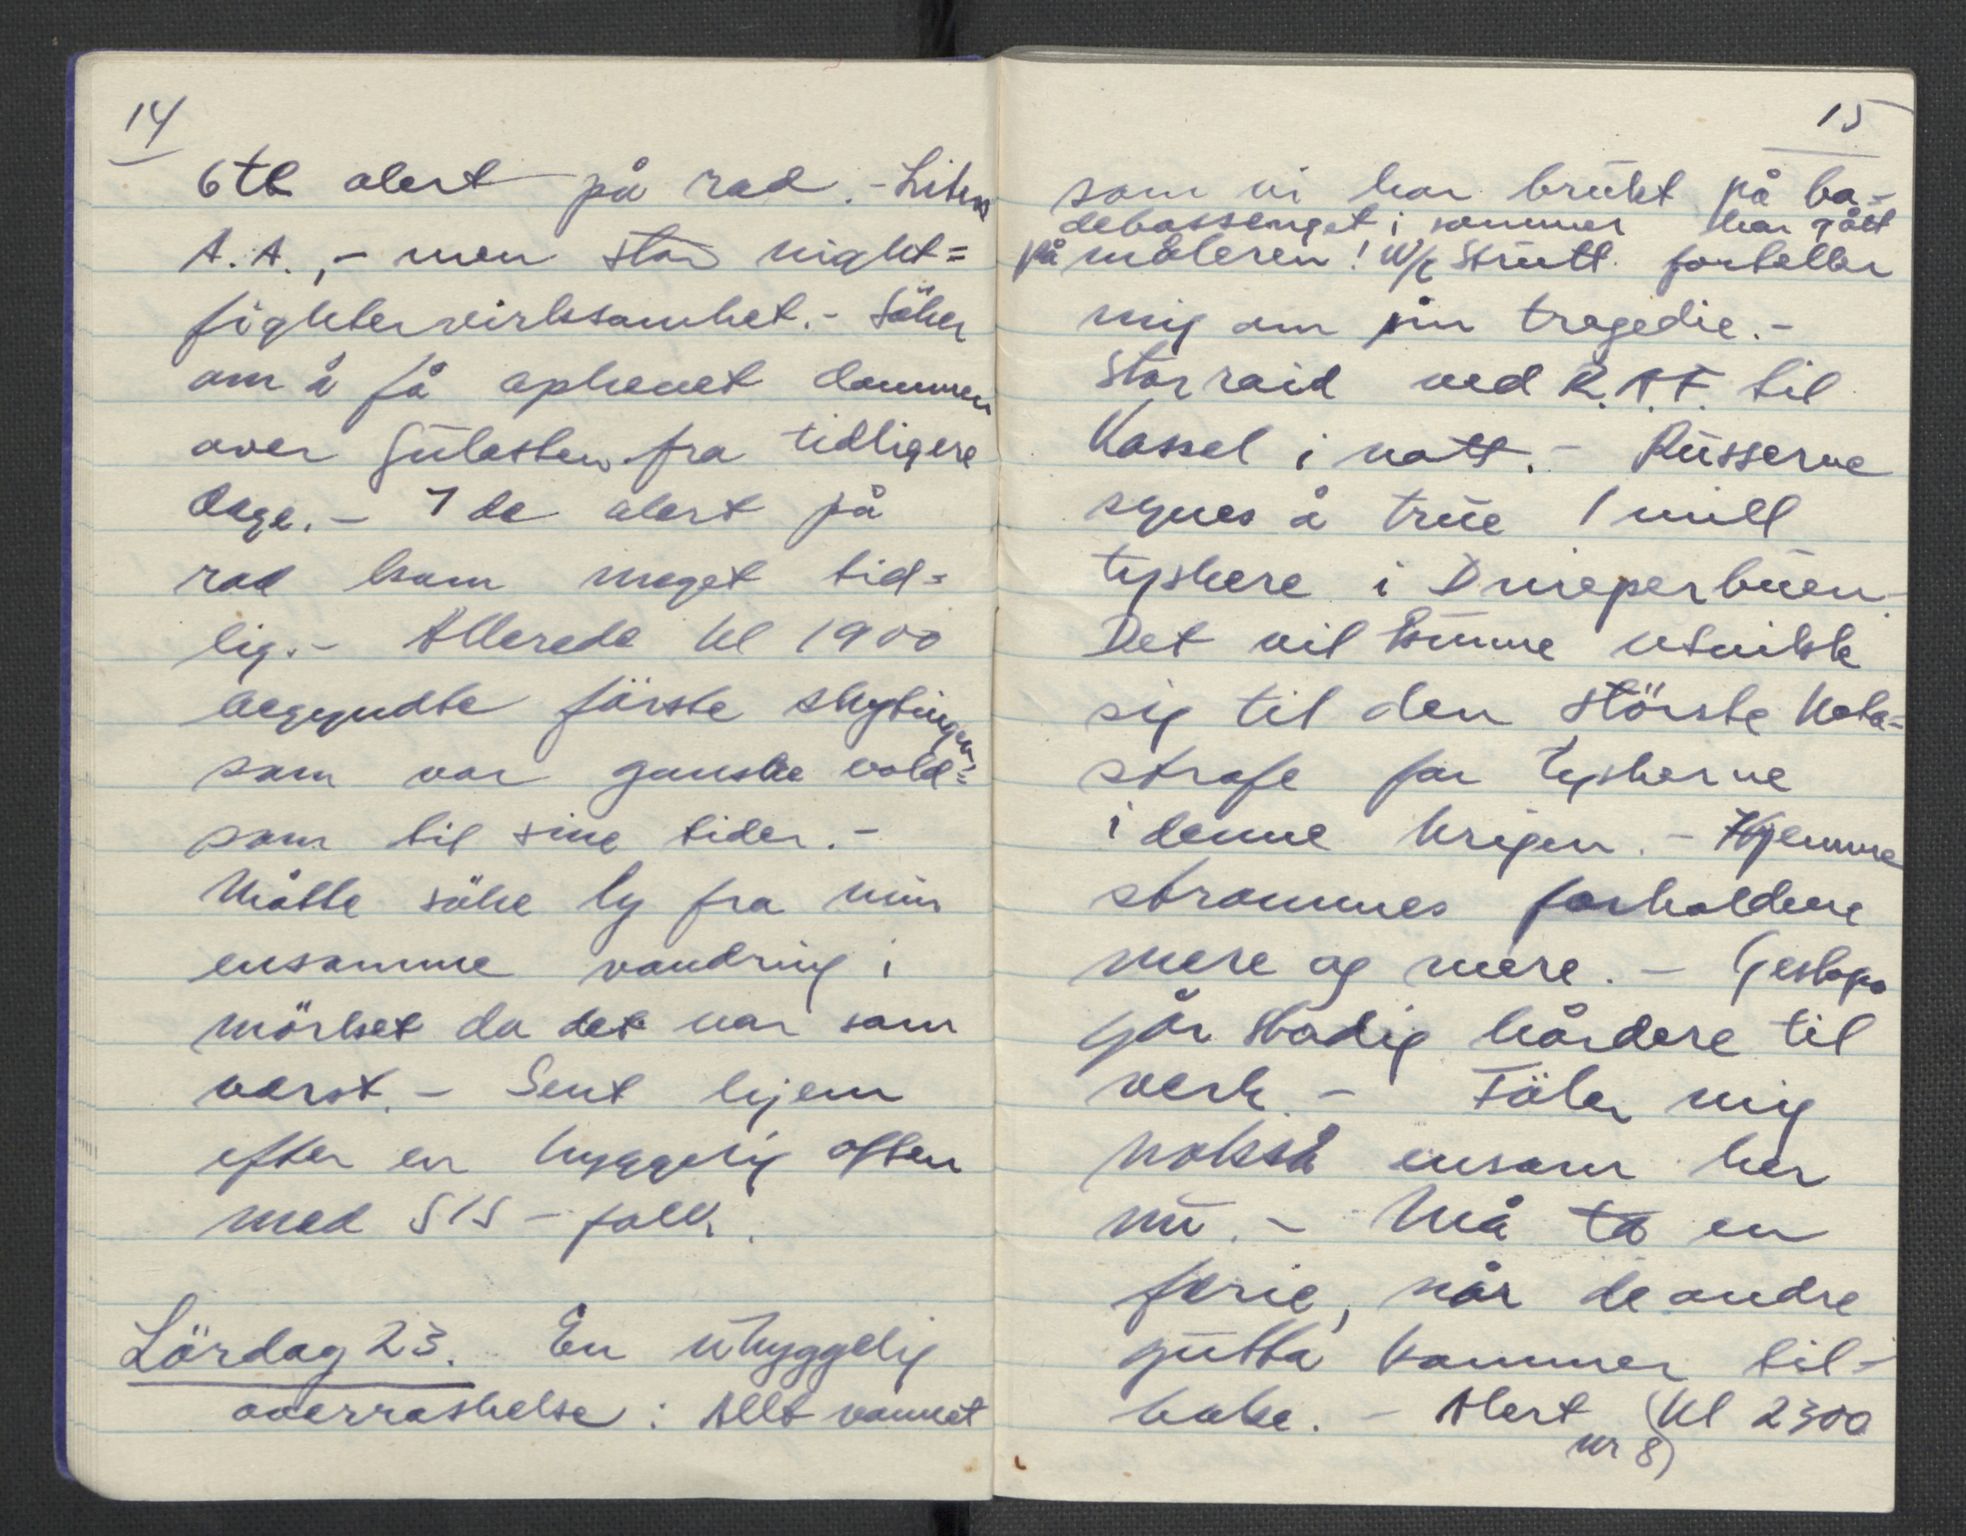 14
6te alert på rad. - Liten
A.A., - men stor night=
fightervirksomhet. - Söker
om å få ophevet dommen
over Gulesten fra tidligere
dage. - 7de alert på
rad kom meget tid=
lig. - Allerede kl 1900
begyndte förste skytingen
som var ganske vold=
som til sine tider. -
Måtte söke ly fra min
ensomme vandring i
mörket da det var som
verst. - Sent hjem
efter en hyggelig aften
med SIS-folk.
Lördag 23. En uhyggelig
overraskelse: Allt vannet
15
som vi har brukt på ba-
debassenget i sommer har gått
på måleren! W/C Strutt forteller
mig om sin tragedie. -
Stor raid ved R.A.F. til
Kassel i natt. - Russerne
synes å true 1 mill
tyskere i Dnieperbuen.
Det vil kunne utvikle
sig til den störste kata=
strofe for tyskerne
i denne krigen. - Hjemme
strammes forholdene
mere og mere. - Gestapo
går stadig hårdere til
verk. - Föler mig
nokså ensom her
nu. - Må ta en
ferie, når de andre
gutta kommer til-
bake. - Alert (kl 2300
nr 8)